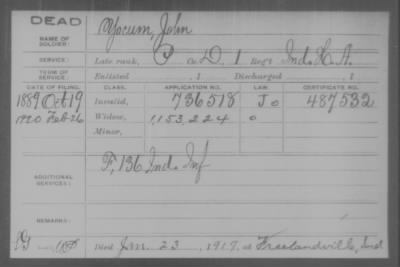 DEAD
NAME OF SOLDIER: Yocum, John
SERVICE: Late rank, P Co. D, 1 Reg't Ind. H. A.
TERM OF SERVICE: Enlisted , 1 Discharged , 1
DATE OF FILING. CLASS. APPLICATION NO. LAW. CERTIFICATE NO.
1889 Oct 19 Invalid, 736518 J 487532
1920 Feb 26 Widow, 1,153,224
Minor,
ADDITIONAL SERVICES: F, 136 Ind. Inf
REMARKS:
Died Jan. 23, 1917, at Freelandville, Ind